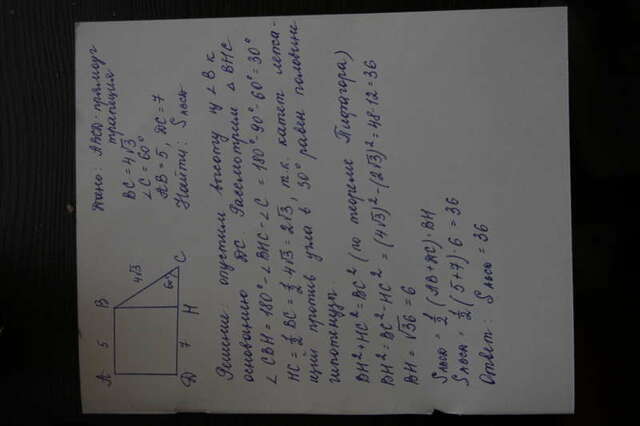 Дано: ABCD - прямоуг
трапеция
BC = 4√3
∠C = 60°
AB = 5, DC = 7
Найти: S ABCD
A 5 B
4√3
60° C
D 7 H
Решение: опустим высоту из ∠B к
основанию DC. Рассмотрим △ BHC
∠ CBH = 180° - ∠ BHC - ∠ C = 180° - 90° - 60° = 30°
HC = ½ BC = ½ · 4√3 = 2√3, т.к. катет лежа-
щий против угла в 30° равен половине
гипотенузы.
BH² + HC² = BC² (по теореме Пифагора)
BH² = BC² - HC² = (4√3)² - (2√3)² = 48 - 12 = 36
BH = √36 = 6
S ABCD = ½ (AB + DC) · BH
S ABCD = ½ (5 + 7) · 6 = 36
Ответ: S ABCD = 36